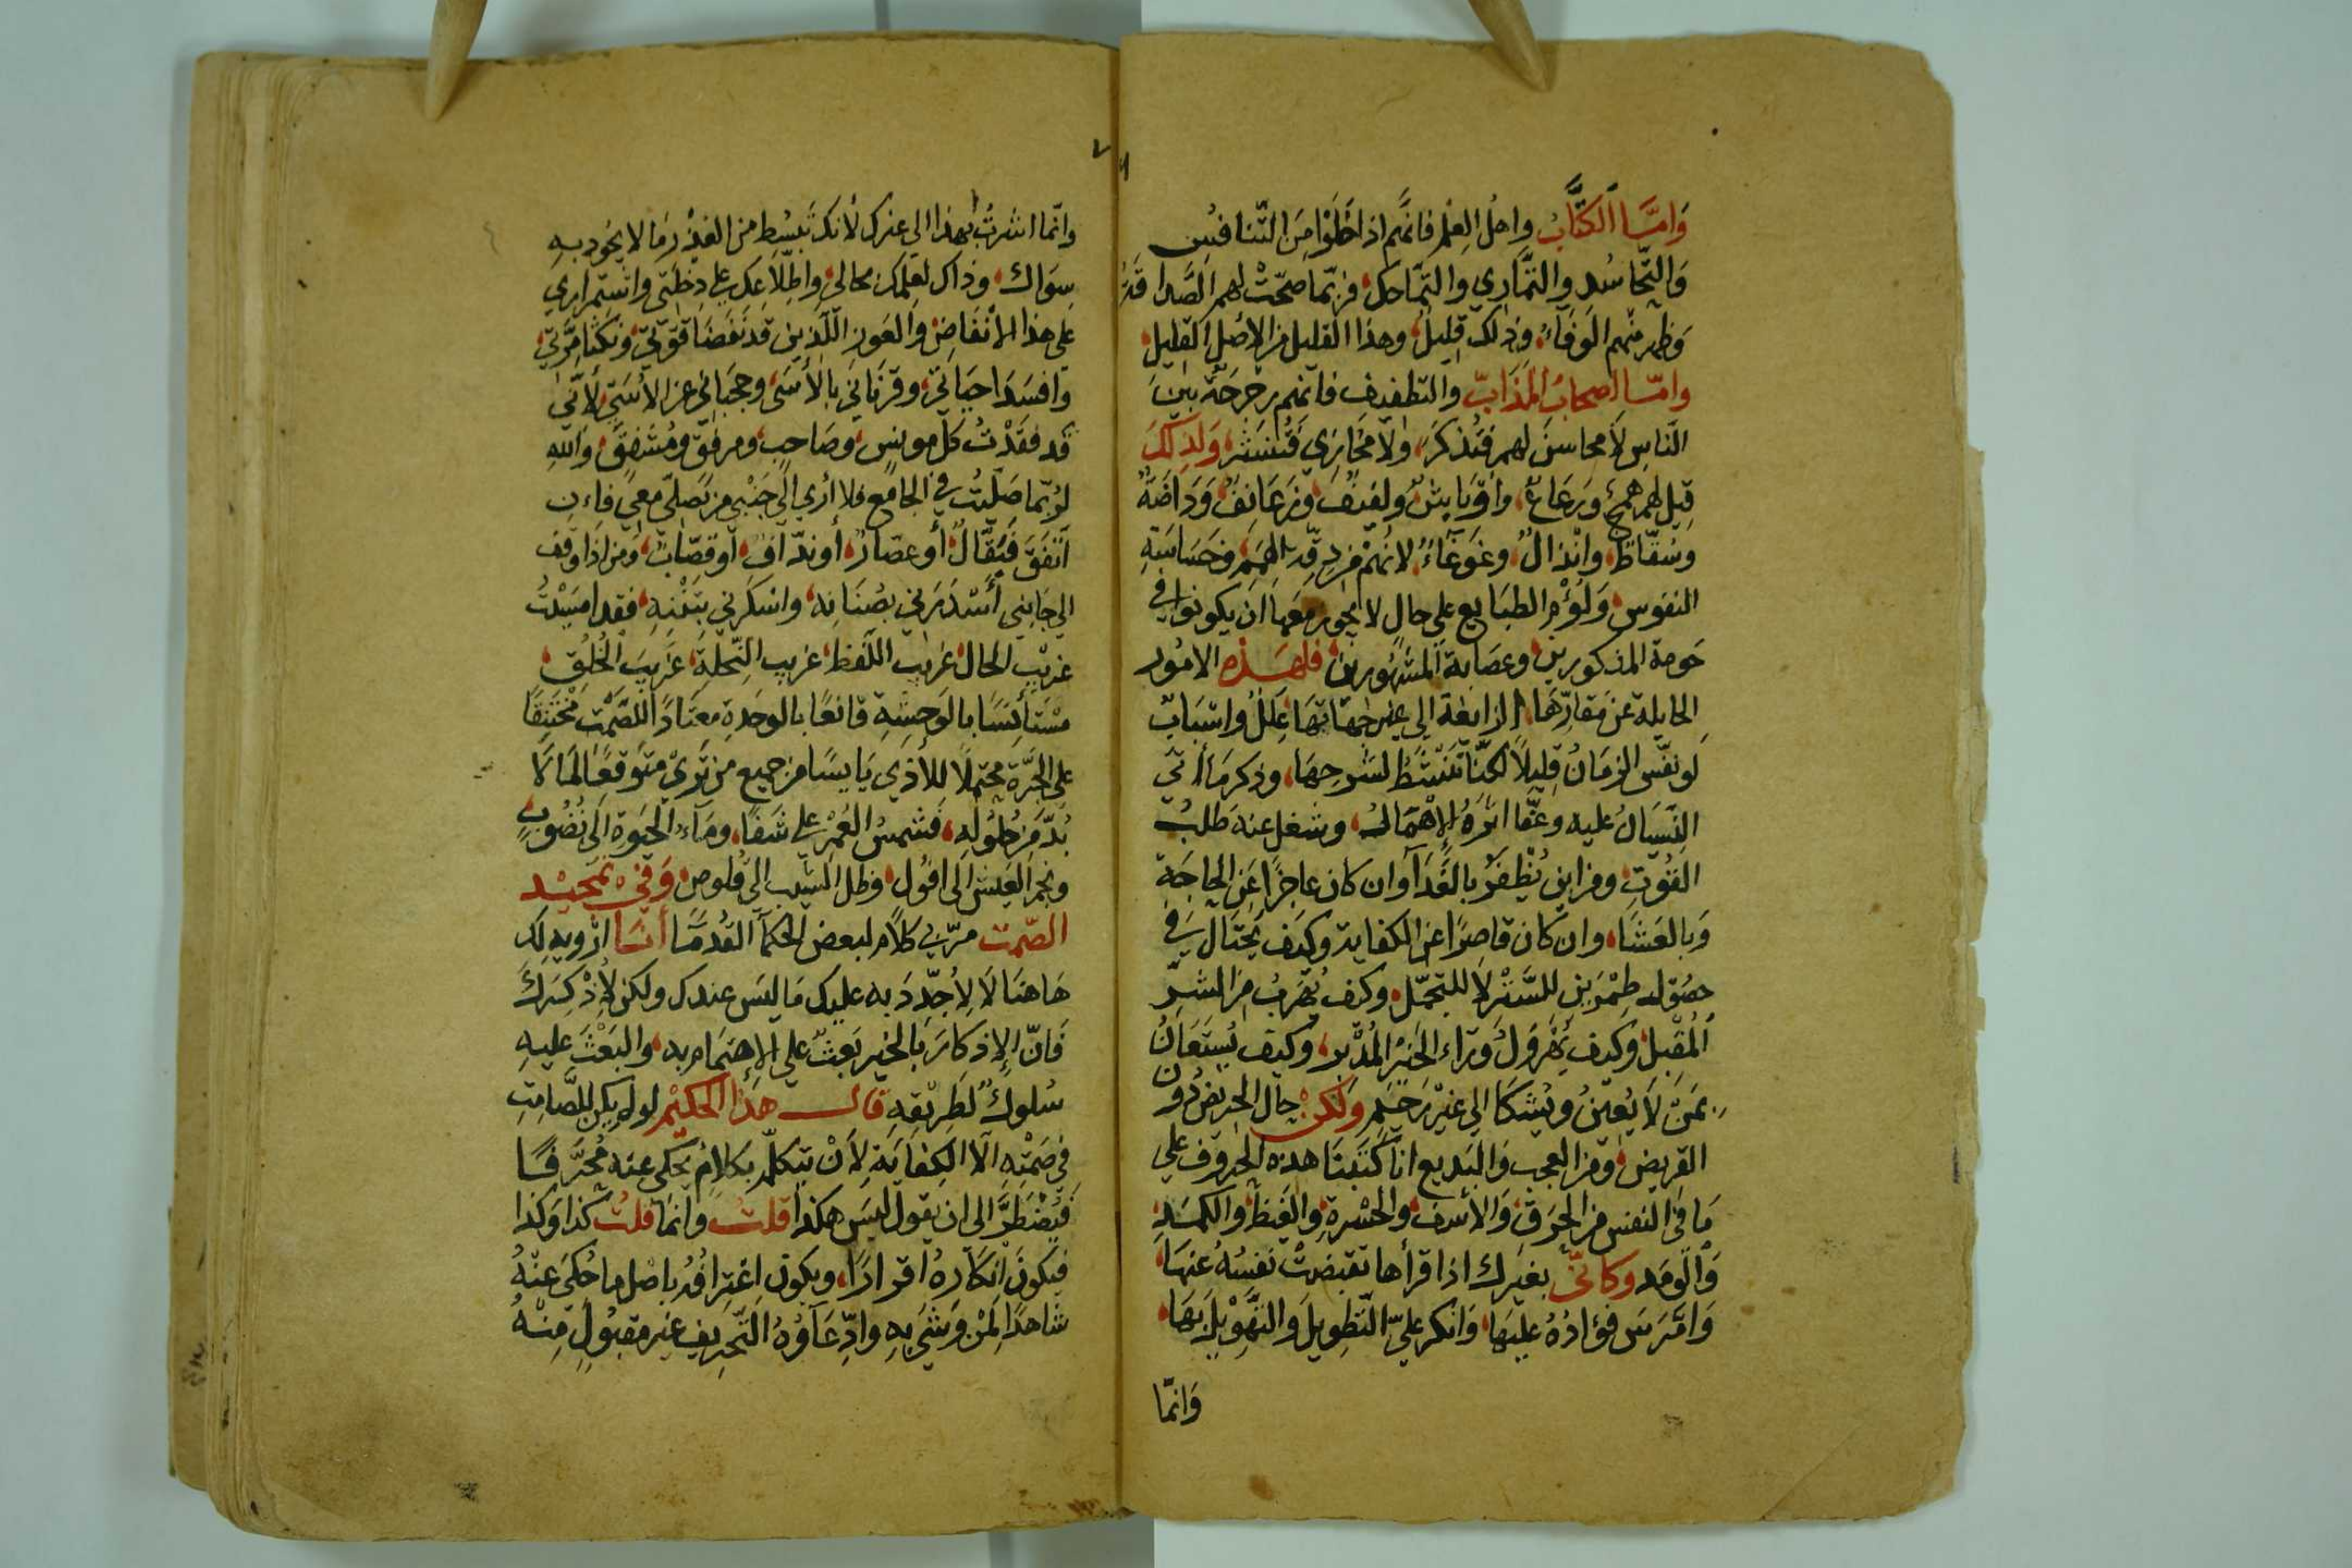 وَامَّا الكُتَّابُ واهلُ العِلْم فانَّهم اذا خَلَوْا مِنَ التَّنافسِ
وَالتَّحاسُدِ والتَّمَارِي والتَّمَاحُك فربّما صحّتْ لهم الصَّداقَةُ
وَظهر منهم الوَفَاءُ وذلك قليلٌ وهذا القليل من الاصل القليل
وامّا اصحابُ المَذَابِّ والتطفيف فانهم رجرجَةٌ بينَ
النَّاسِ لا محاسنَ لهم فتُذكَرَ ولا مخازي فَتُنشَرَ وَلذلِكَ
قِيلَ لهم همجٌ ورَعَاعٌ واوْبَاشٌ ولفيفٌ وزَعَانفُ وَدَاصَّةٌ
وسُقّاطٌ وانْذالٌ وغَوغَاءُ لانهم من دِقّة الهِمَم وخسَاسَةِ
النفوس ولُؤْم الطبَايع على حالٍ لا يجوز معها ان يكونوا في
حَومة المذكورين وعصَابة المشهُورين فلهذه الامُور
الحايلة عن مَقارّهَا الزايغة الى غير جهَاتهَا عِلَلٌ واسْبَابٌ
لو نفّس الزمَانُ قليلاً لكنّا نَنْشَطُ لشرحِهَا وذكر مَا اتى
النِّسيَانُ عليه وعَفّا اثرَهُ الاهْمَالُ وشغل عنه طَلبُ
القُوتِ ومن اين يُظْفَرُ بالغَدَا وان كان عاجزًا عَنِ الحاجَةِ
وَبالعَشَا وان كان قاصِرًا عن الكفاية وكيفَ يَحتَال في
حصُول طِمْرَينِ للسَّتْر لا للتجمّل وكيف يُهْرَبُ من الشرّ
المُقبِل وكيف يُهَرْوَلُ وَرَاء الخَير المُدْبر وكيفَ يُستَعَانُ
بمَن لا يُعينُ ويُشكَا الى غيرْ رَحيم ولكن حال الجريضُ دُونَ
القريض ومن العجب وَالبَديع انّا كَتَبنَا هذه الحروف على
مَا في النفس من الحرَق وَالاسف والحسْرة والغيظ والكمَدِ
وَالوَمَد وكانّي بغيرك اذا قرأها تقبّضتْ نفسُهُ عنهَا
وَامّرَسَ فؤادُهُ عليهَا وَانكر عليَّ التّطويلَ وَالتّهْوِيلَ بهَا
وَانّما
وانّما اشرتُ بهذا الى غيرك لانك تبسُط من العُذْر مَا لا يجُود بهِ
سِوَاك وذاك لعِلمك بحالي واطّلاعك على دخلَتي واسْتمراري
على هذا الانفاض والعَوز اللّذين قد نقَضَا قوّتي ونكثَا مِرّتي
وافسَدَا حيَاتي وقرنَاني بالأَسَى وحجبَاني عن الأُسَى لانّي
قد فقدْتُ كلّ مونسٍ وصَاحبٍ ومرفقٍ ومُشفِقٍ وَاللهِ
لرُبّما صَلّيتُ في الجامع فلا ارى الى جَنْبي من يَصَلّي معي فان
اتّفقَ فبَقّالٌ أو عصّارٌ أو ندّافٌ أو قصّابٌ ومن اذا وقف
الى جَانبي أَسْدَرَني بصُنَانه واسكرني بنَتْنِهِ فقد امسَيْتُ
غريْب الحَال غريب اللّفظ غريب النِّحْلَةِ غَريبَ الخُلُقِ
مسْتَأنِسًا بالوَحشةِ قانعًا بالوحدة معتَادًا للصّمْت مخْتَنِقًا
على الجرَّة محتملاً للأذى يَايسًا من جميع من تَرى متوَقعًا لمَا لَا
بُدَّ من حُلُولِهِ فشمسُ العُمْر على شَفًا ومَاءُ الحَيوةِ الى نُضُوبٍ
ونجم العَيش الى افُول وظل الشيب الى قُلوص وَفي تمجيد
الصّمت مرّ بي كلامٌ لبعض الحكمَا القُدمَا أنا ارْويهِ لك
هَاهنَا لا لِأُجدّدَ به عليك مَا ليسَ عندك ولكن لأُذْكِرَكَ
فَانّ الإذكارَ بالخَير بَعثٌ على الاهتمَام به وَالبَعْثَ عليهِ
سُلوكٌ لطرِيْقِهِ قال هَذا الحكيْم لو لم يكن للصَّامِتِ
في صَمْتِهِ الّا الكِفايَة لِأَنْ يتكلّم بكلامٍ يحكى عنه مُحَرَّفًا
فيُضْطَرَّ الى ان يقول ليسَ هكذا قلتُ وانمَا قلتُ كذا وَكذا
فيكونَ انكارُهُ اقرارًا ويكون اعْترافُهُ باصْل ما حُكيَ عَنْهُ
شاهدًا لِمَنْ وَشَى بهِ وادِّعَاوُهُ التَّحرِيفَ غيرَ مقبُولٍ مِنْهُ